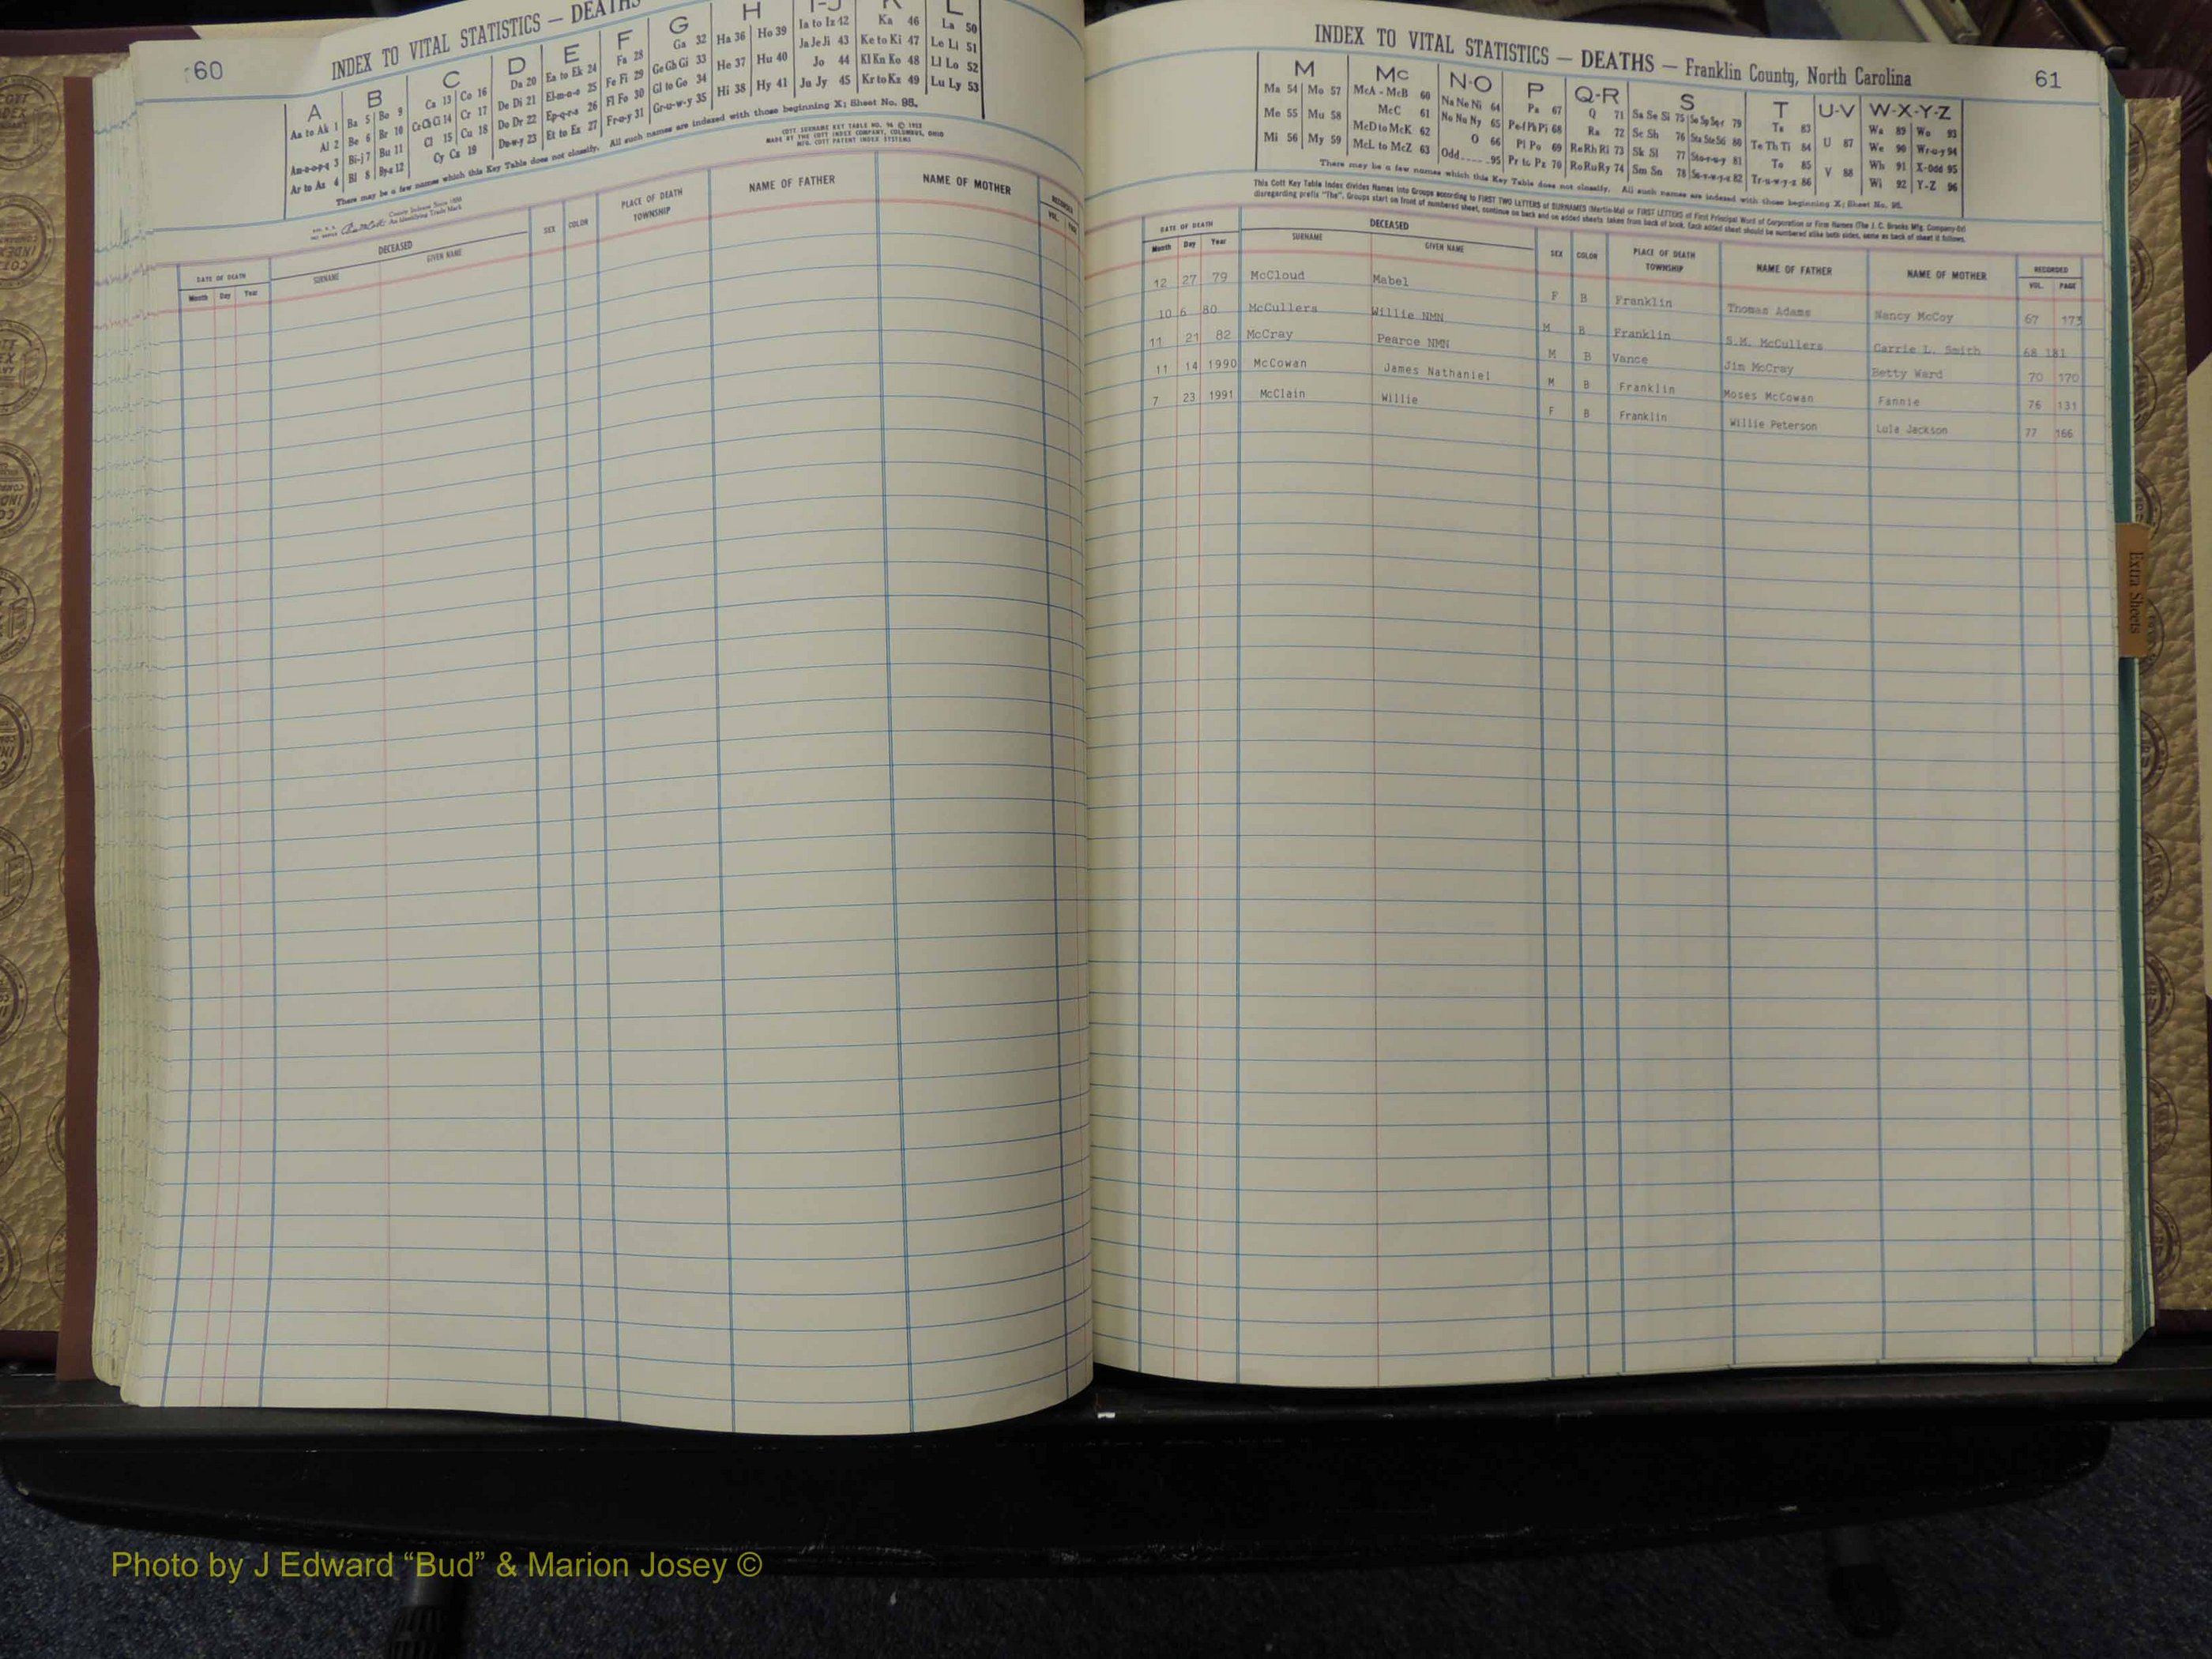 60
INDEX TO VITAL STATISTICS — DEATHS
A B C D E F G H I-J K L
Aa to Ak 1 Ba 5 Bo 9 Ca 13 Co 16 Da 20 Ea to Ek 24 Fa 28 Ga 32 Ha 36 Ho 39 Ia to Iz 42 Ka 46 La 50
Al 2 Be 6 Br 10 Ce Ch Ci 14 Cr 17 De Di 21 El-m-n-o 25 Fe Fi 29 Ge Gh Gi 33 He 37 Hu 40 Ja Je Ji 43 Ke to Ki 47 Le Li 51
Am-n-o-p-q 3 Bi-j 7 Bu 11 Cl 15 Cu 18 Do Dr 22 Ep-q-r-s 26 Fl Fo 30 Gl to Go 34 Hi 38 Hy 41 Jo 44 Kl Kn Ko 48 Ll Lo 52
Ar to Az 4 Bl 8 By-z 12 Cy Cz 19 Du-w-y 23 Et to Ex 27 Fr-u-y 31 Gr-u-w-y 35 Ju Jy 45 Kr to Kz 49 Lu Ly 53
There may be a few names which this Key Table does not classify. All such names are indexed with those beginning X; Sheet No. 95.
COTT SURNAME KEY TABLE NO. 96 © 1952
MADE BY THE COTT INDEX COMPANY, COLUMBUS, OHIO
MFG. COTT PATENT INDEX SYSTEMS
County Indexes Since 1888
An Identifying Trade Mark
DATE OF DEATH DECEASED SEX COLOR PLACE OF DEATH TOWNSHIP NAME OF FATHER NAME OF MOTHER RECORDED
Month Day Year SURNAME GIVEN NAME VOL. PAGE
INDEX TO VITAL STATISTICS — DEATHS — Franklin County, North Carolina
61
M Mc N-O P Q-R S T U-V W-X-Y-Z
Ma 54 Mo 57 McA - McB 60 Na Ne Ni 64 Pa 67 Q 71 Sa Se Si 75 So Sp Sq-r 79 Ta 83 U 87 Wa 89 Wo 93
Me 55 Mu 58 McC 61 No Nu Ny 65 Pe-f Ph Pi 68 Ra 72 Sc Sh 76 Sta Ste Sti 80 Te Th Ti 84 V 88 We 90 Wr-u-y 94
Mi 56 My 59 McD to McK 62 O 66 Pl Po 69 Re Rh Ri 73 Sk Sl 77 Sto-r-u-y 81 To 85 Wh 91 X-Odd 95
McL to McZ 63 Odd 95 Pr to Pz 70 Ro Ru Ry 74 Sm Sn 78 Su-v-w-y-z 82 Tr-u-w-y-z 86 Wi 92 Y-Z 96
There may be a few names which this Key Table does not classify. All such names are indexed with those beginning X; Sheet No. 95.
This Cott Key Table Index divides Names into Groups according to FIRST TWO LETTERS of SURNAMES (Martin-Ma) or FIRST LETTERS of First Principal Word of Corporation or Firm Names (The J. C. Brooks Mfg. Company-Br)
disregarding prefix "The". Groups start on front of numbered sheet, continue on back and on added sheets taken from back of book. Each added sheet should be numbered alike both sides, same as back of sheet it follows.
DATE OF DEATH DECEASED SEX COLOR PLACE OF DEATH TOWNSHIP NAME OF FATHER NAME OF MOTHER RECORDED
Month Day Year SURNAME GIVEN NAME VOL. PAGE
12 27 79 McCloud Mabel F B Franklin Thomas Adams Nancy McCoy 67 173
10 6 80 McCullers Willie NMN M B Franklin S.M. McCullers Carrie L. Smith 68 181
11 21 82 McCray Pearce NMN M B Vance Jim McCray Betty Ward 70 170
11 14 1990 McCowan James Nathaniel M B Franklin Moses McCowan Fannie 76 131
7 23 1991 McClain Willie F B Franklin Willie Peterson Lula Jackson 77 166
Extra Sheets
Photo by J Edward “Bud” & Marion Josey ©